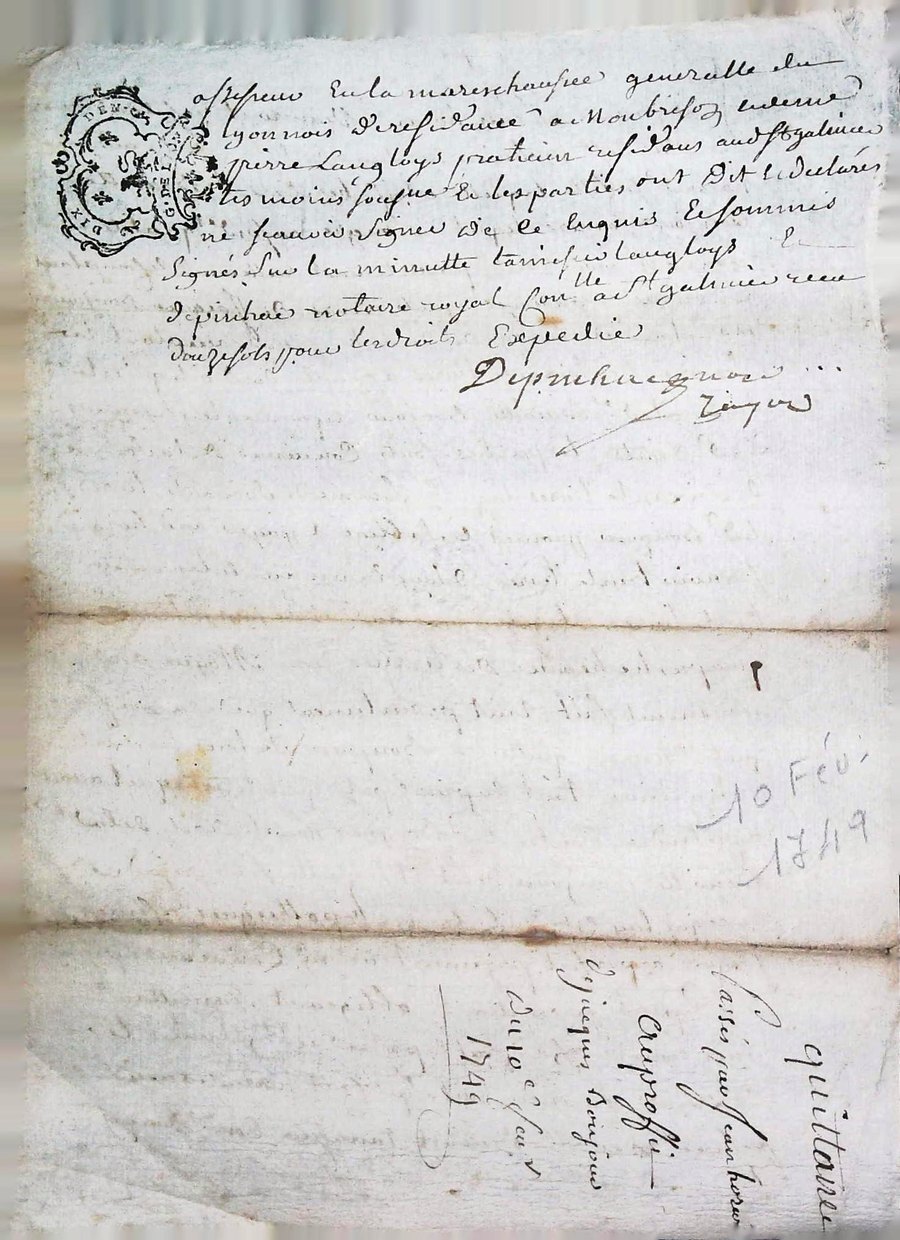 DIX DEN. G. DE LYON
assesseur En la mareschaussee generalle du
Lyonnois de residance a Montbrison ende me
pierre Langloys praticien residant aud St galmier
tesmoins sousne Et les parties ont Dit et declarés
ne scavoir signer de ce Enquis Et sommés
signés sur la minutte tamisier langloys Et
depinhac notaire royal Con lle a St galmier receu
douze sols pour les droits Expedié
Depinhac no re ...
royal
10 Fév.
1749
quittance
passés par Jean
Au proffit
de jacques Boujou
Du 10 e feu r
1749